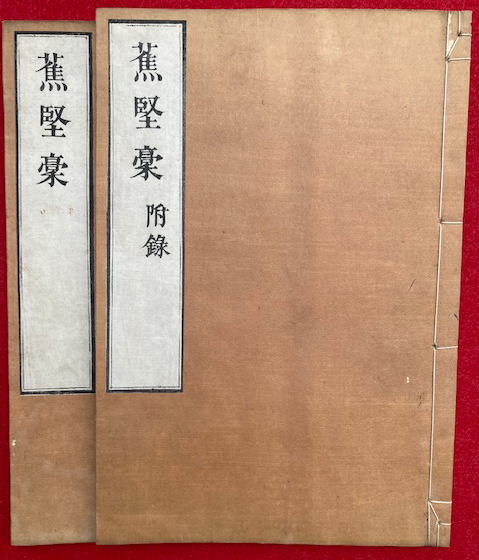 蕉堅稾
附錄
蕉堅稾